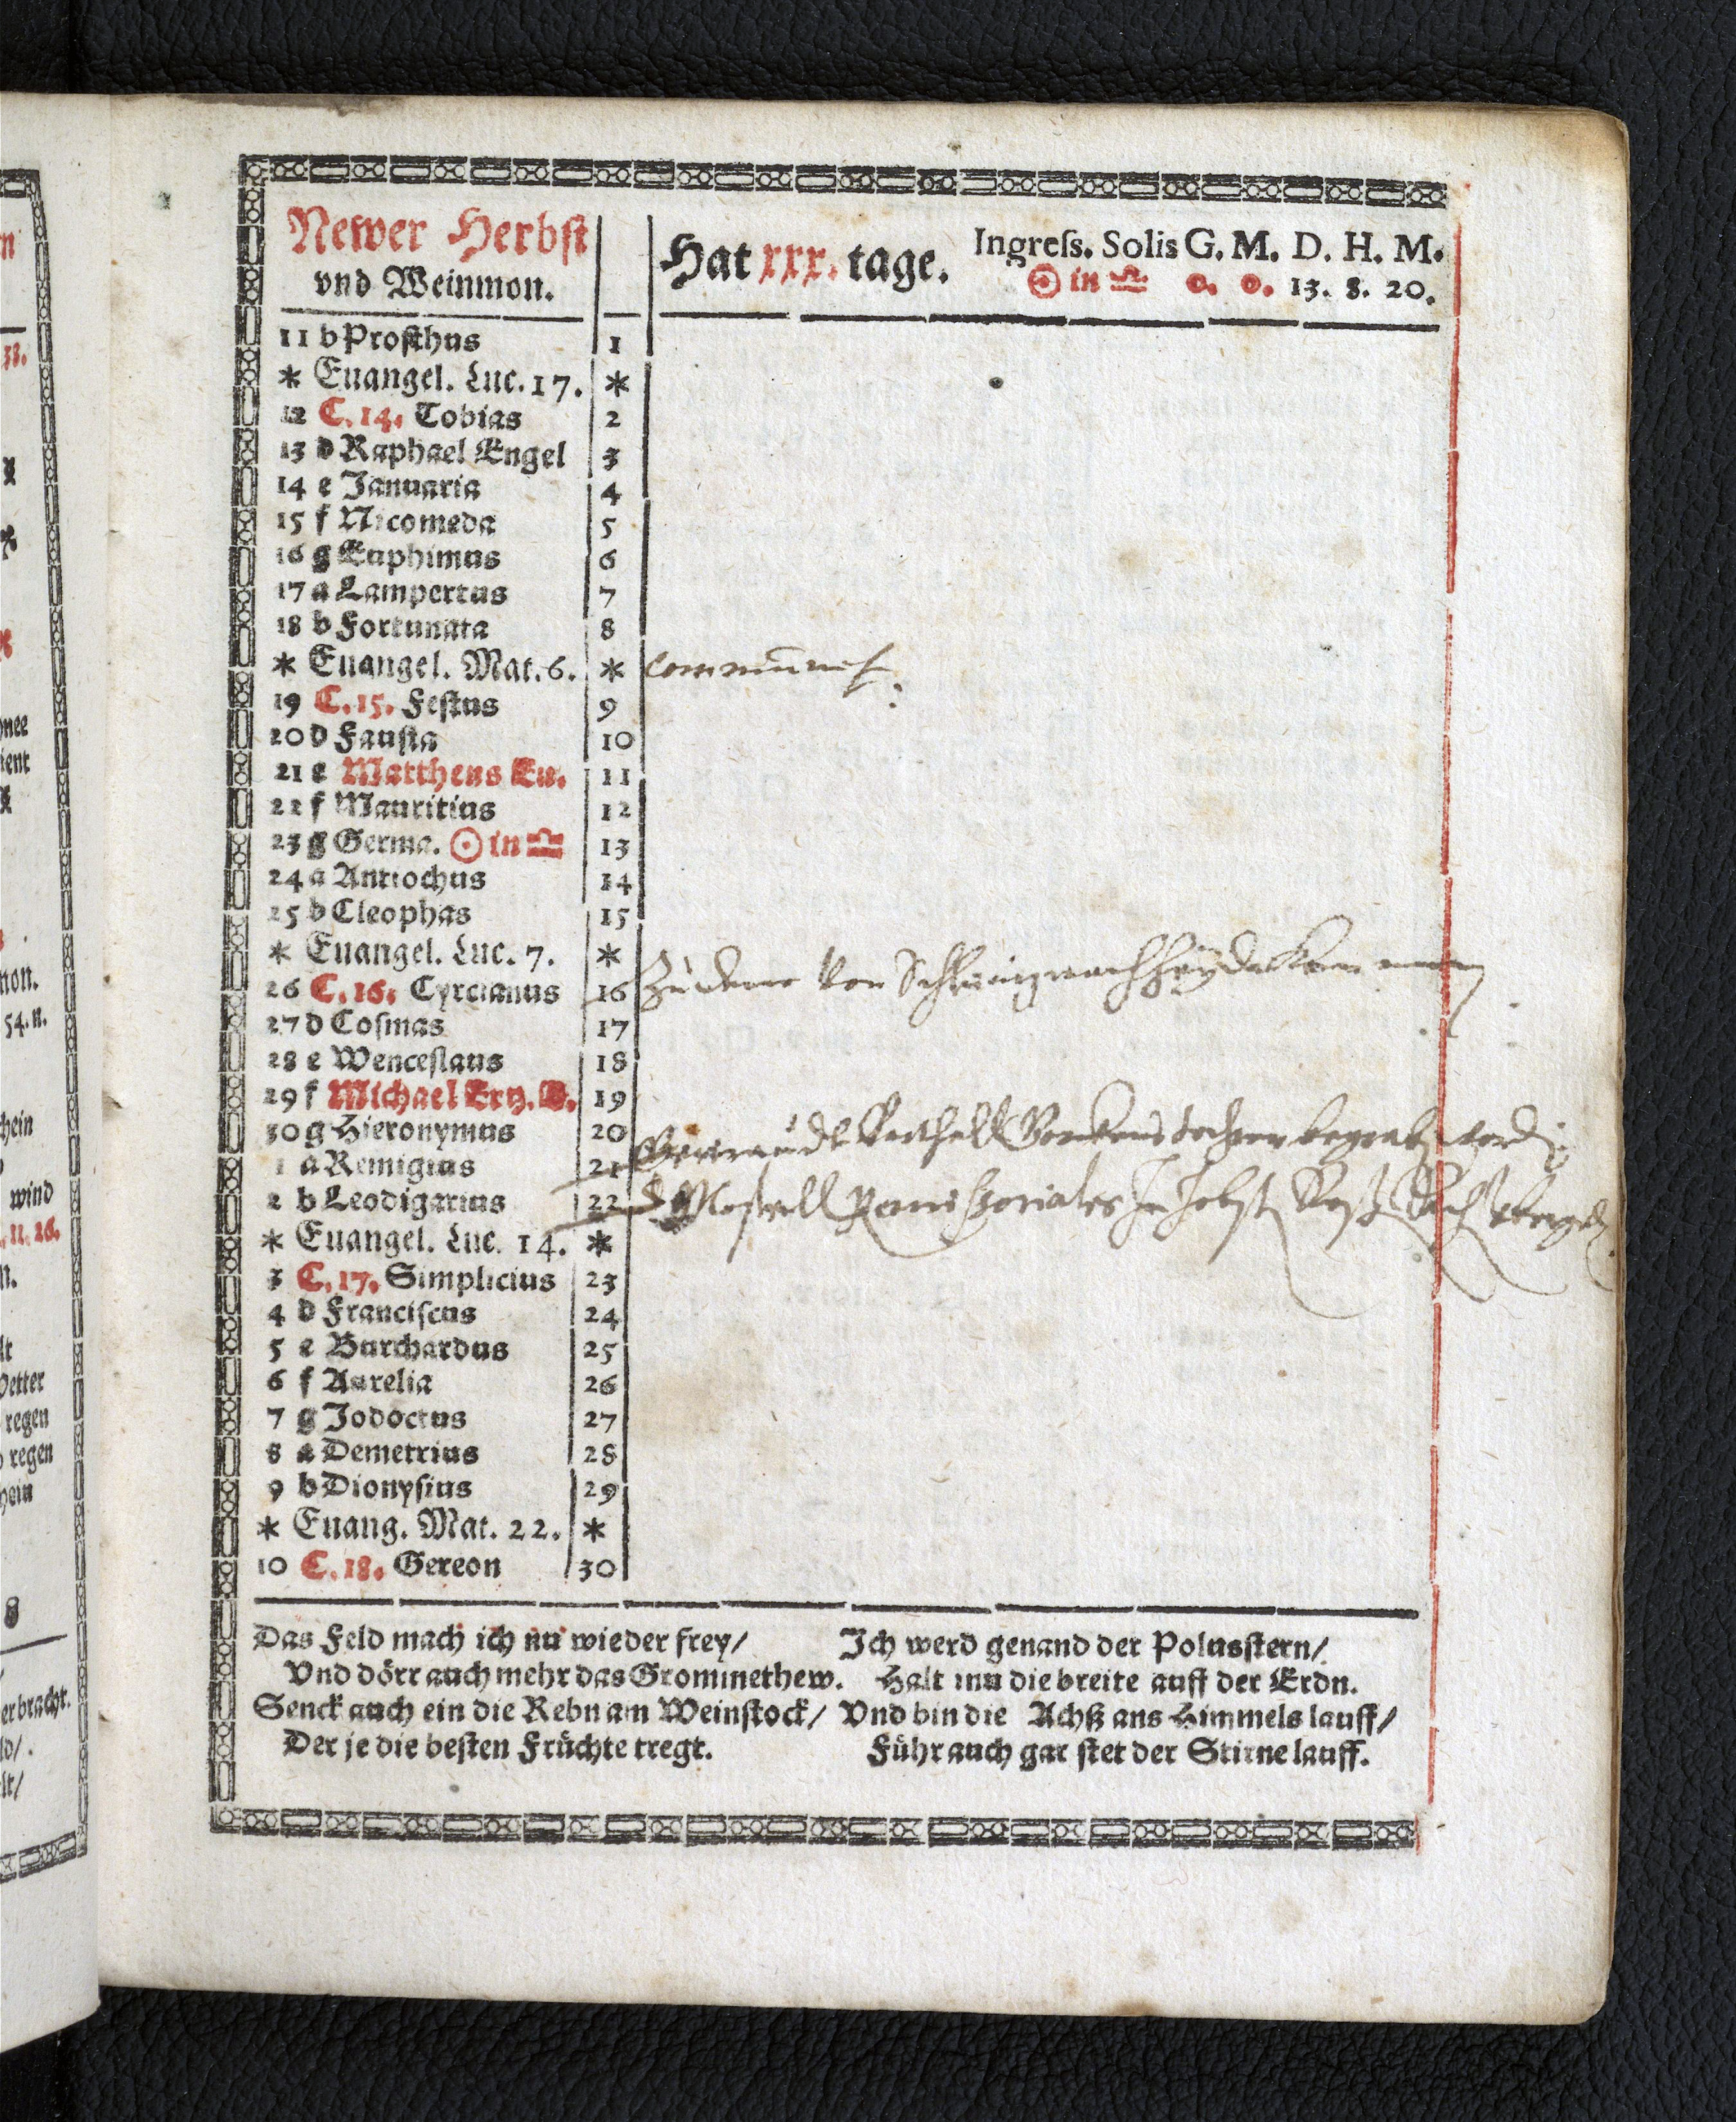 Newer Herbst
vnd Weinmon.
Hat xxx. tage.
Ingreſs. Solis G. M. D. H. M.
☉ in ♎ 0. 0. 13. 8. 20.
11 b Proſthus 1
* Euangel. Luc. 17. *
12 C. 14. Tobias 2
13 d Raphael Engel 3
14 e Januaria 4
15 f Nicomeda 5
16 g Euphimus 6
17 a Lampertus 7
18 b Fortunata 8
* Euangel. Mat. 6. *
19 C. 15. Feſtus 9
20 d Fauſta 10
21 e Mattheus Eu. 11
22 f Mauritius 12
23 g Germa. ☉ in ♎ 13
24 a Antiochus 14
25 b Cleophas 15
* Euangel. Luc. 7. *
26 C. 16. Cyrcianus 16 Zu von
27 d Coſmas 17
28 e Wenceslaus 18
29 f Michael Ertz. E. 19
30 g Hieronymus 20
1 a Remigius 21
2 b Leodigarius 22
* Euangel. Luc. 14. *
3 C. 17. Simplicius 23
4 d Franciſcus 24
5 e Burchardus 25
6 f Aurelia 26
7 g Jodoctus 27
8 a Demetrius 28
9 b Dionyſius 29
* Euang. Mat. 22. *
10 C. 18. Gereon 30
Das Feld mach ich nu wieder frey/
Vnd dörr auch mehr das Grommethew.
Senck auch ein die Rebn am Weinſtock/
Der je die beſten Früchte tregt.
Ich werd genand der Polusſtern/
Halt inn die breite auff der Erdn.
Vnd bin die Achß ans Himmels lauff/
Führ auch gar ſtet der Stirne lauff.